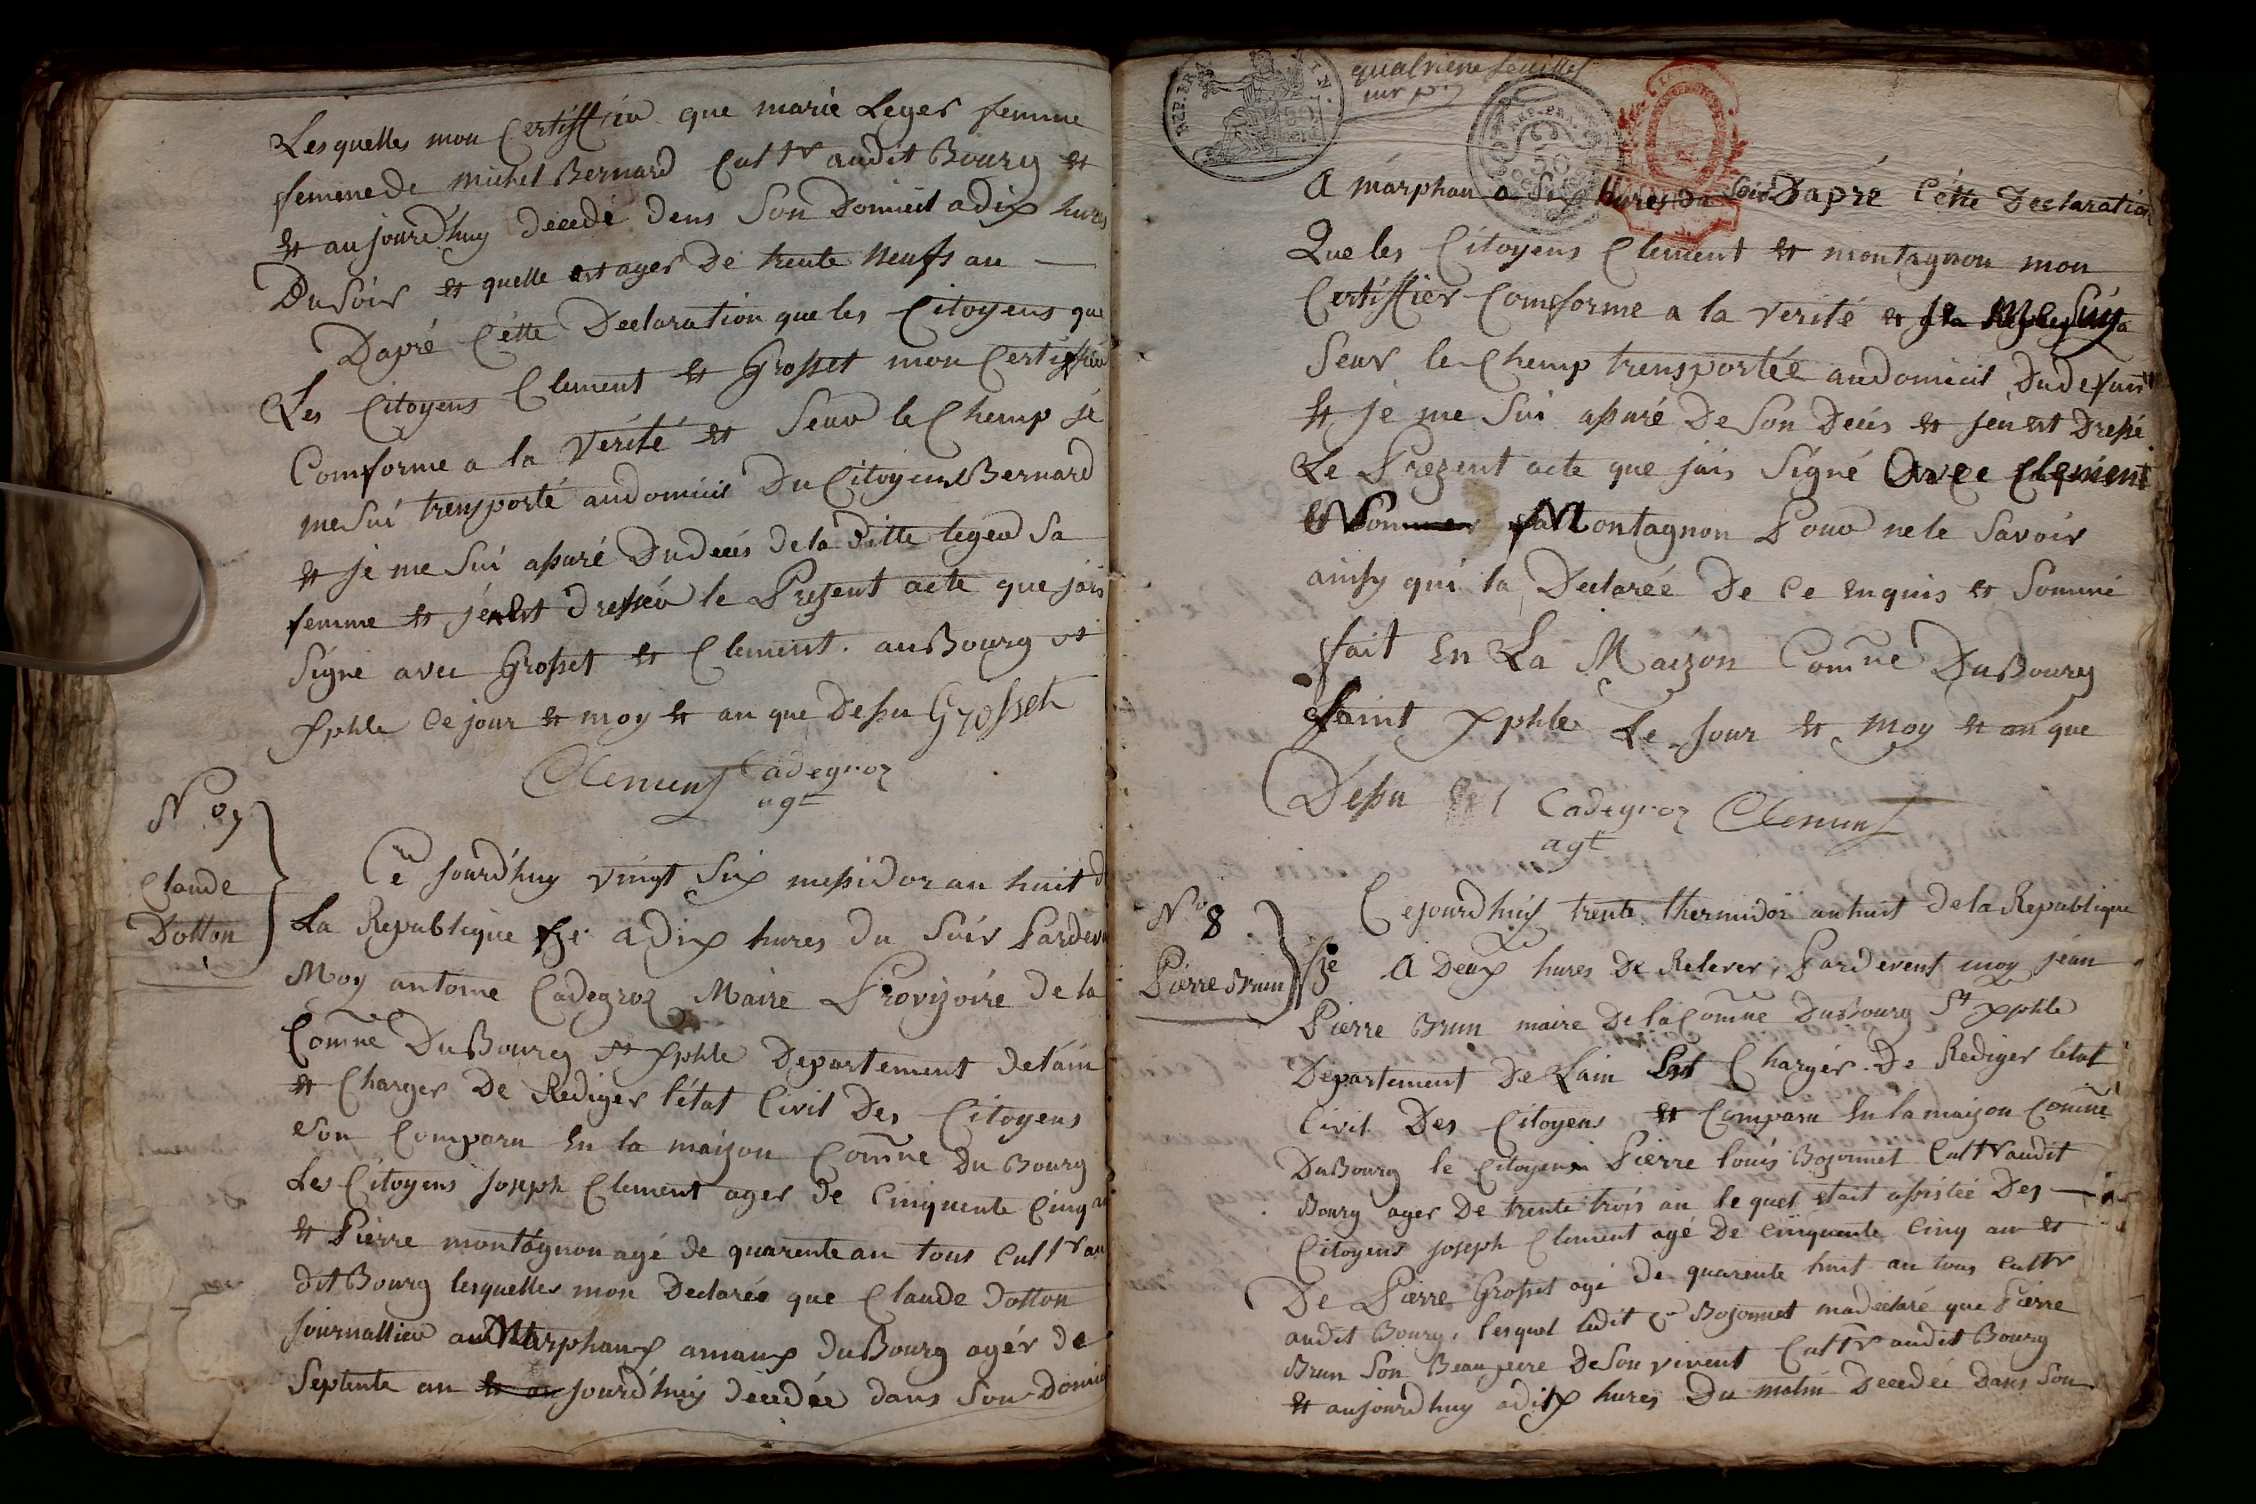 Lesquelles mon Certiffiéu que marie Leger femme
femme de michel Bernard Cultr audit Bourg et
et aujourd'huy décédé dens Son Domicil a dix hures
Du Soir et quelle est ager De trente Neufs an —
Dapré Cétte Declaration que les Citoyens que
Les Citoyens Clement et Grosset mon Certiffiéu
Comforme a la Verité et Seur le Chemp je
me Sui trensporté audomicil Du Citoyens Bernard
et je me Sui assuré Du decés de la ditte leger Sa
femme et jen est dresséu le Present acte que jais
Signé avec Grosset et Clement. au Bourg st
Xphle Ce jour et moy et an que Dessu Grosset
Clement Cadegroz
agt
No 7
Claude
Dotton
Cé jourd'huy vingt Six messidor an huit d
La Republique fse a dix hures du Soir Pardev
Moy antoine Cadegroz Maire Provizoire de la
Comne Du Bourg St Xphle Departement de lain
et Charger De Rediger l'état Civil Des Citoyens
eson Comparu En la maizon Comne Du Bourg
Les Citoyens Joseph Clement ager de Cinquente Cinq an
et Pierre montagnon agé de quarente an tous Cultr au
dit Bourg lesquelles mon Declarée que Claude dotton
journallieu au Marphaux amaux du Bourg agér de
Septente an jourd'huy décédée dans Son Domici
REP. FRA.
quatrieme feuillet
REP. FRA.
50
A marphau a Six hures Du Soir Dapré Cétte Declaration
Que les Citoyens Clement et montagnon mon
Certiffier Comforme a la Verité et Me Suy
Seur le Chemp trensportée audomicil Du defunt
et je me Sui assuré De Son Decés et jen est Dressé
Le Prezent acte que jais Signé Avec Clement
et Non Montagnon Pour ne le Savoir
ainsy qui la Declarée De Ce enquis et Sommé
fait En La Maizon Comne Du Bourg
Saint Xphle Le Jour et Moy et an que
Dessu Cadegroz Clement
agt
No 8.
Pierre Brun
Cejourd'huy trente thermidor an huit de la Republique
fse A Deux hures De Relever, Pardevent moy jéan
Pierre Brun maire De la Comne Du Bourg St Xphle
Departement De Lain Est Charger De Rediger létat
Civil Des Citoyens et Comparu En la maizon Comne
Du Bourg le Citoyens Pierre louis Bozonnet Cultr audit
Bourg ager De trente trois an lequel était assistée Des —
Citoyens Joseph Clement agé De Cinquente Cinq an et
De Pierre Grosset agé de quarente huit an tous Cultr
audit Bourg, lesquel ledit Cn Bozonnet madeclaré que Pierre
Brun Son Beaupere De Son vivent Cultr audit Bourg
et aujourdhuy a dix hures Du matin Décédée Dans Son